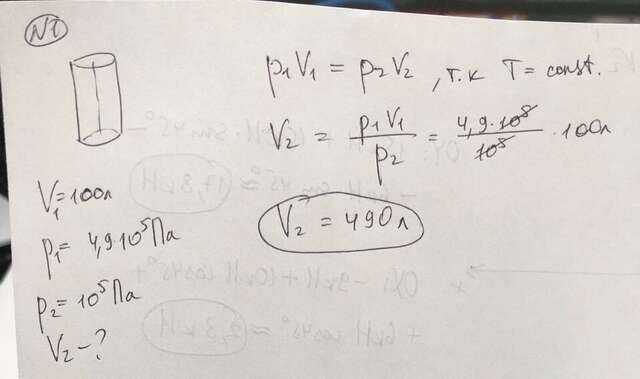 N1
p₁V₁ = p₂V₂ , т.к T = const.
V₂ = p₁V₁/p₂ = 4,9·10⁵/10⁵ · 100л
V₂ = 490л
V₁=100л
p₁= 4,9·10⁵Па
p₂= 10⁵Па
V₂ - ?